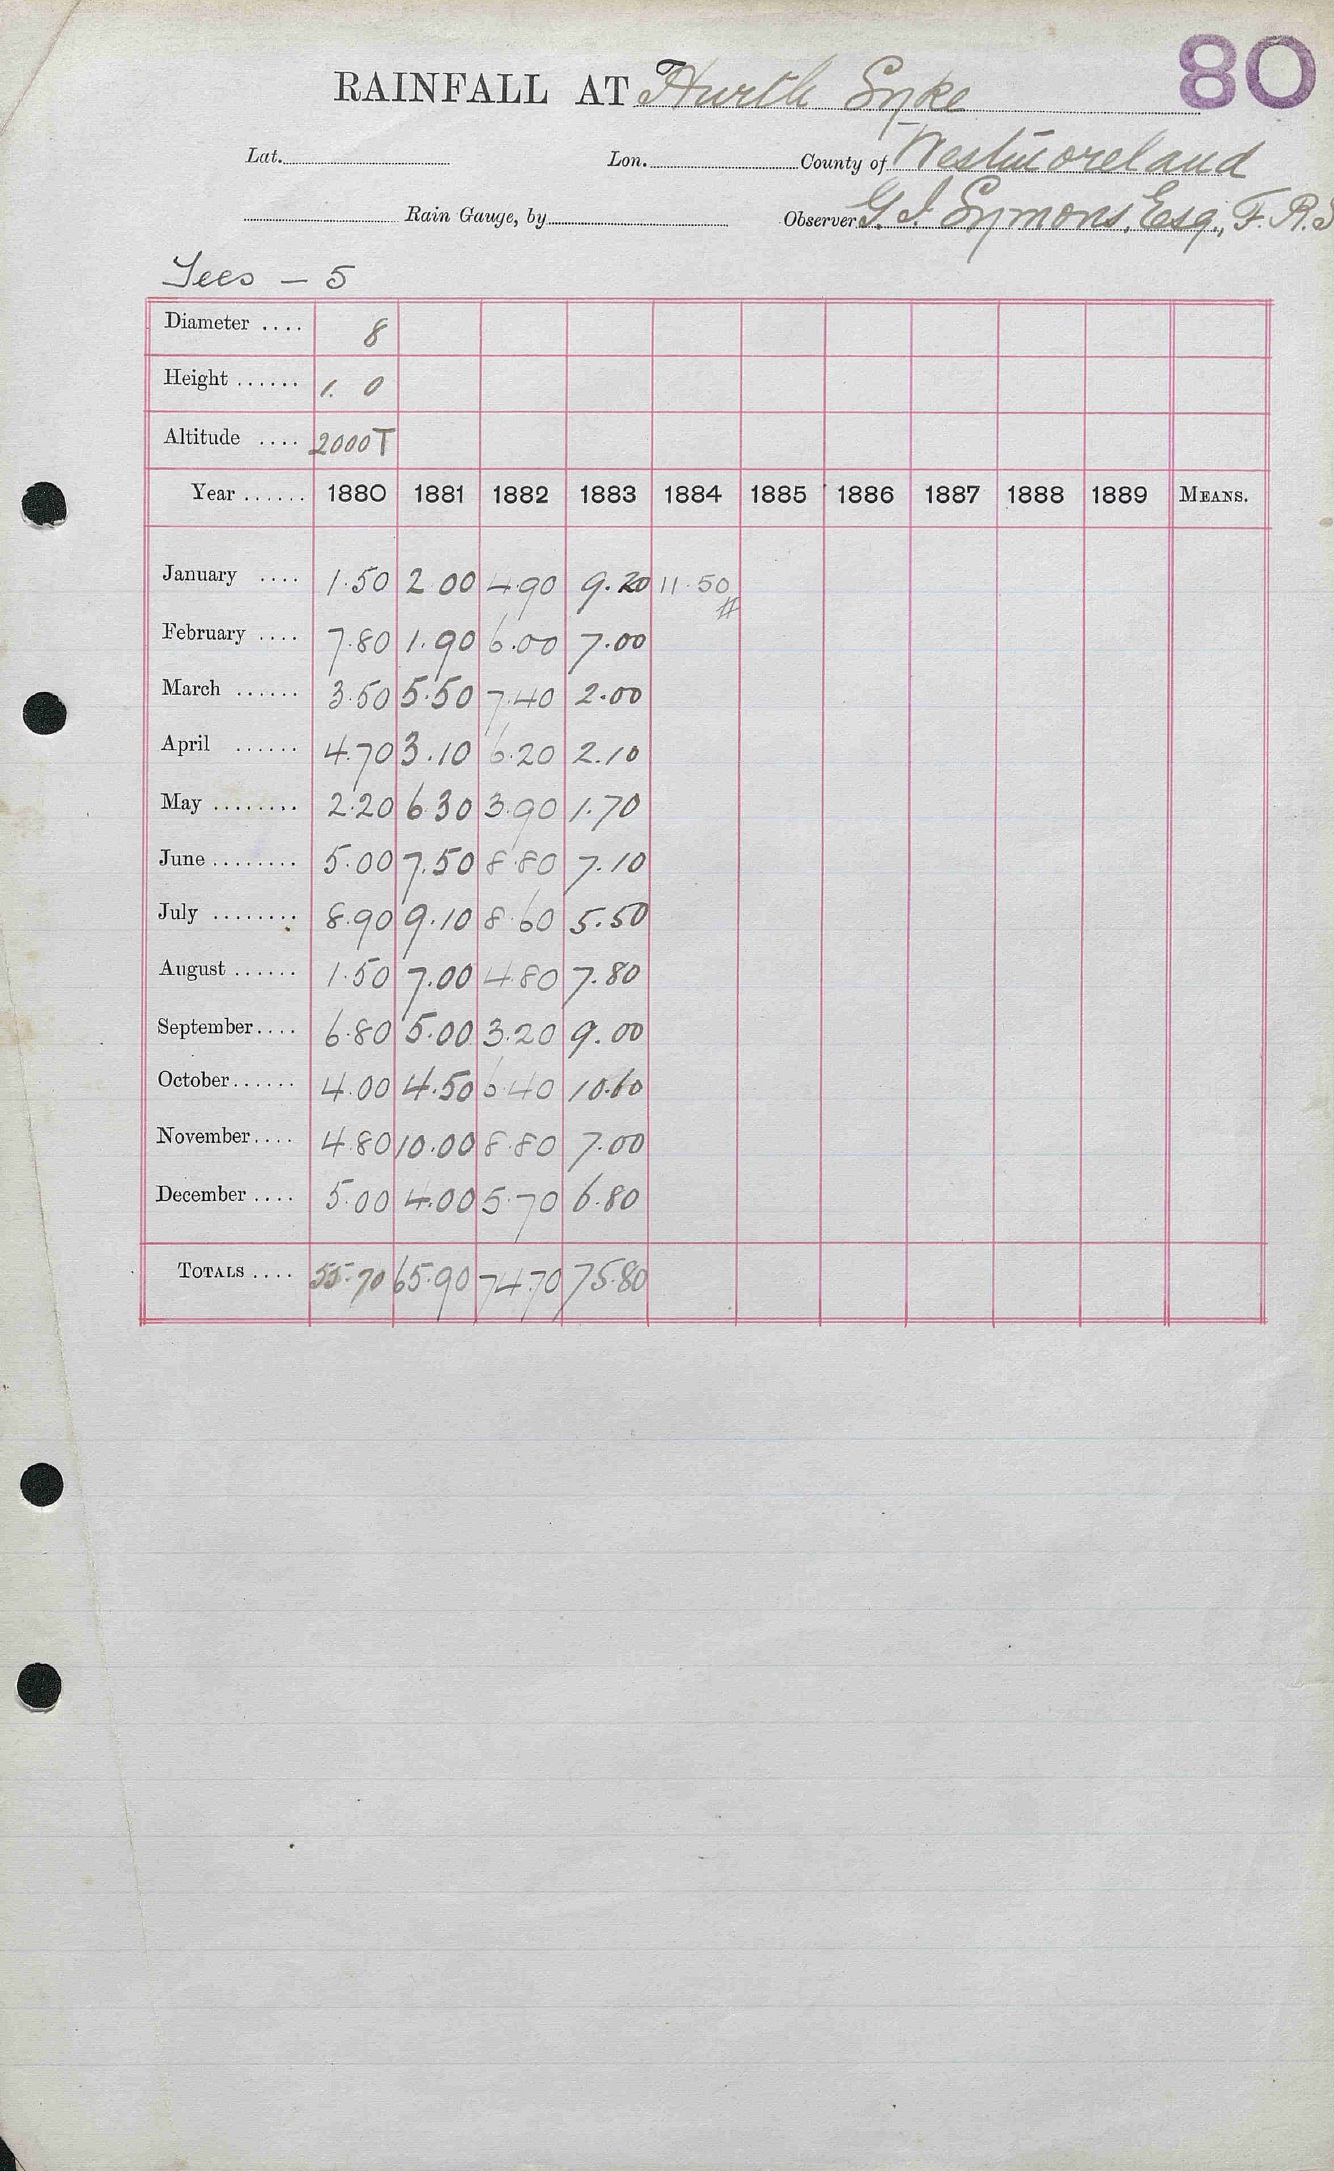 80
RAINFALL AT Hurth Syke
Lat. Lon. County of Westmoreland
Rain Gauge, by Observer G. J. Symons, Esq., F. R. S
Tees – 5
Diameter .... 8
Height ...... 1. 0
Altitude .... 2000 T
Year ...... 1880 1881 1882 1883 1884 1885 1886 1887 1888 1889 MEANS.
January .... 1.50 2.00 4.90 9.20 11.50 #
February .... 7.80 1.90 6.00 7.00
March ...... 3.50 5.50 7.40 2.00
April ...... 4.70 3.10 6.20 2.10
May ........ 2.20 6.30 3.90 1.70
June ........ 5.00 7.50 8.80 7.10
July ........ 8.90 9.10 8.60 5.50
August ...... 1.50 7.00 4.80 7.80
September .... 6.80 5.00 3.20 9.00
October ...... 4.00 4.50 6.40 10.60
November .... 4.80 10.00 8.80 7.00
December .... 5.00 4.00 5.70 6.80
TOTALS .... 55.70 65.90 74.70 75.80